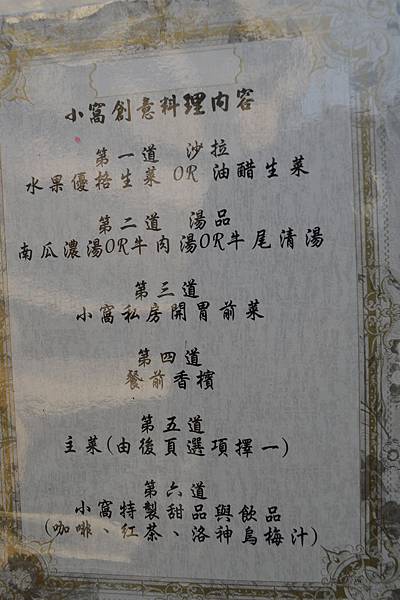 小窩創意料理內容
第一道 沙拉
水果優格生菜 OR 油醋生菜
第二道 湯品
南瓜濃湯OR牛肉湯OR牛尾清湯
第三道
小窩私房開胃前菜
第四道
餐前香檳
第五道
主菜(由後頁選項擇一)
第六道
小窩特製甜品與飲品
(咖啡、紅茶、洛神烏梅汁)